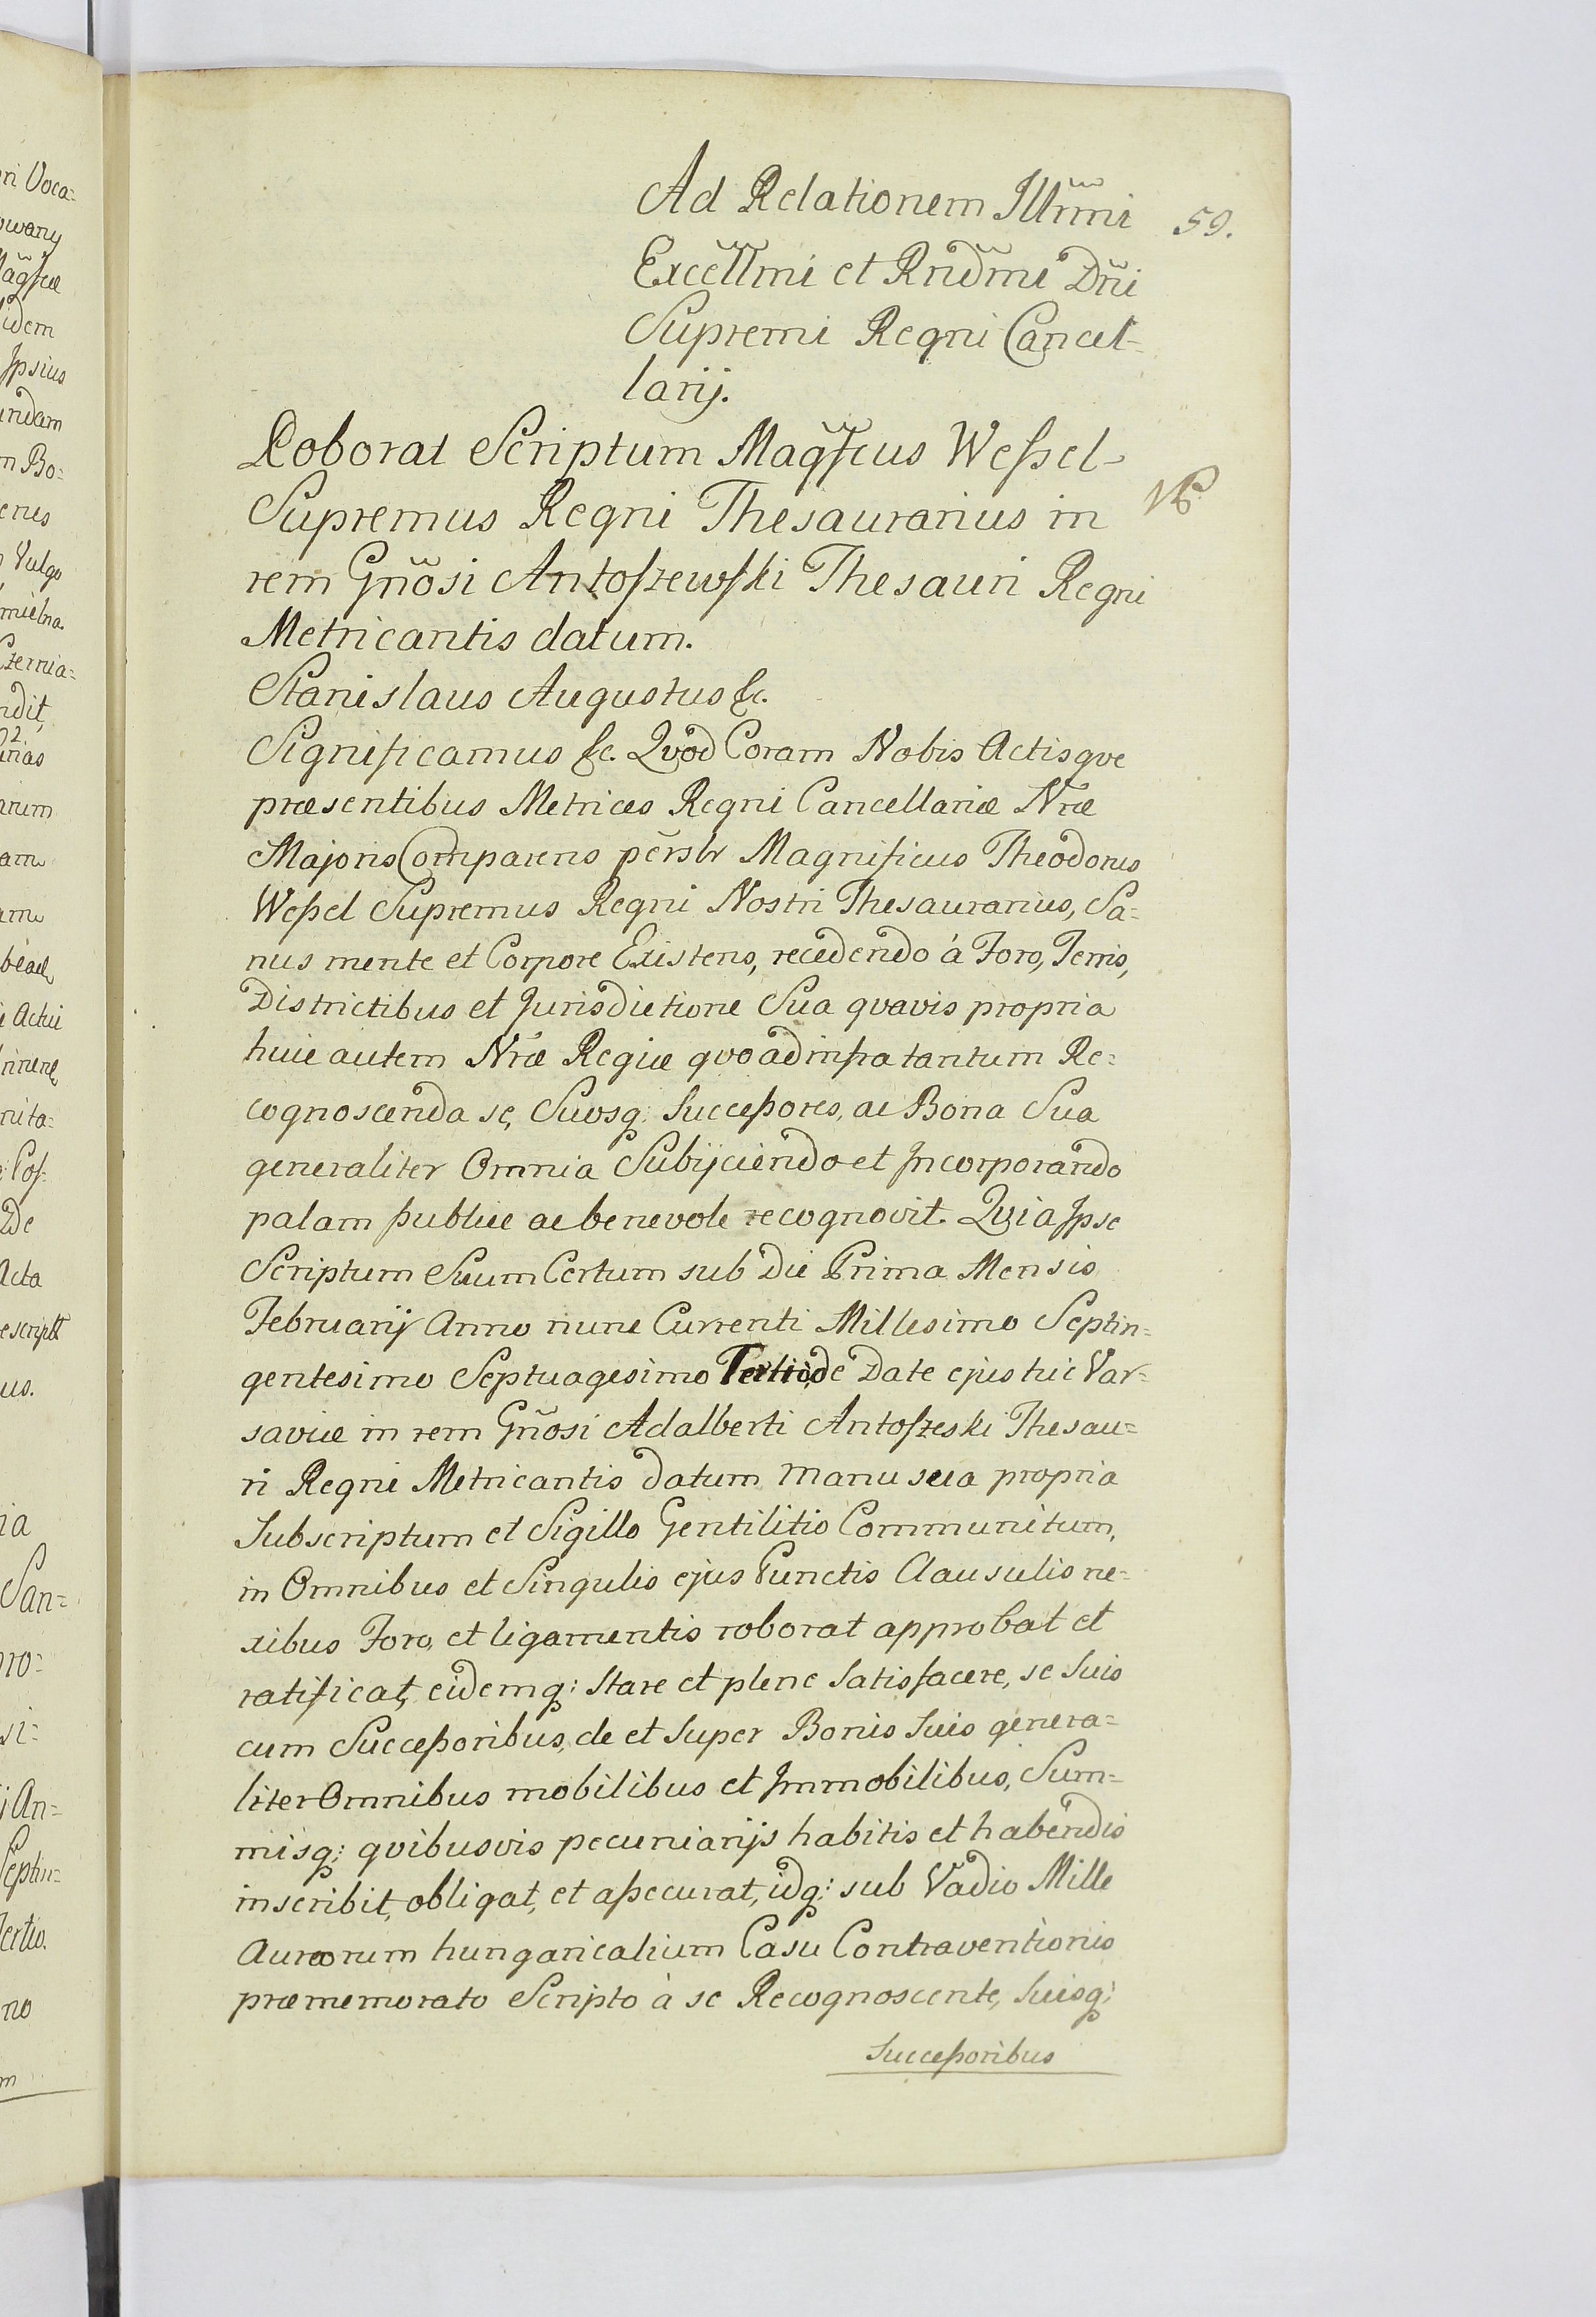 Ad Relationem Illrm̃i
59.
Excellm̃i et Rndm̃i Dñi
Supremi Regni Cancel=
larij.
Roborat Scriptum Magfcus Weßel
Supremus Regni Thesaurarius in
NB
rem Gñosi Antoſzewſki Thesauri Regni
Metricantis datum.
Stanislaus Augustus &c.
Significamus &c. Qvod Coram Nobis Actisqve
præsentibus Metrices Regni Cancellariæ Nræ
Majoris Comparens per̃slr Magnificus Theodorus
Weßel Supremus Regni Nostri Thesaurarius, Sa=
nus mente et Corpore Existens, recedendo à Foro, Terris,
Districtibus et Jurisdictione Sua qvavis propria
huic autem Nræ Regiæ qvoad infra tantum Re=
cognoscenda se, Suosq: Succeßores, ac Bona Sua
generaliter Omnia Subijciendo et Incorporando
palam publice ac benevole recognovit. Qvia Ipse
Scriptum Suum Certum sub Die Prima Mensis
Februarij Anno nunc Currenti Millesimo Septin=
gentesimo Septuagesimo Tertio, de Date ejus hic Var=
saviæ in rem Gñosi Adalberti Antoſzeski Thesau=
ri Regni Metricantis datum manu sua propria
Subscriptum et Sigillo Gentilitio Communitum,
in Omnibus et Singulis ejus Punctis Clausulis ne=
xibus Foro, et ligamentis roborat approbat et
ratificat, eidemq: Stare et plene Satisfacere, se Suis
cum Succeßoribus, de et Super Bonis Suis genera=
liter Omnibus mobilibus et Immobilibus, Sum=
misq: qvibusvis pecuniarijs habitis et habendis
inscribit, obligat, et aßecurat, idq: sub Vadio Mille
Aureorum hungaricalium Casu Contraventionis
præmemorato Scripto à se Recognoscente, Suisq:
Succeßoribus